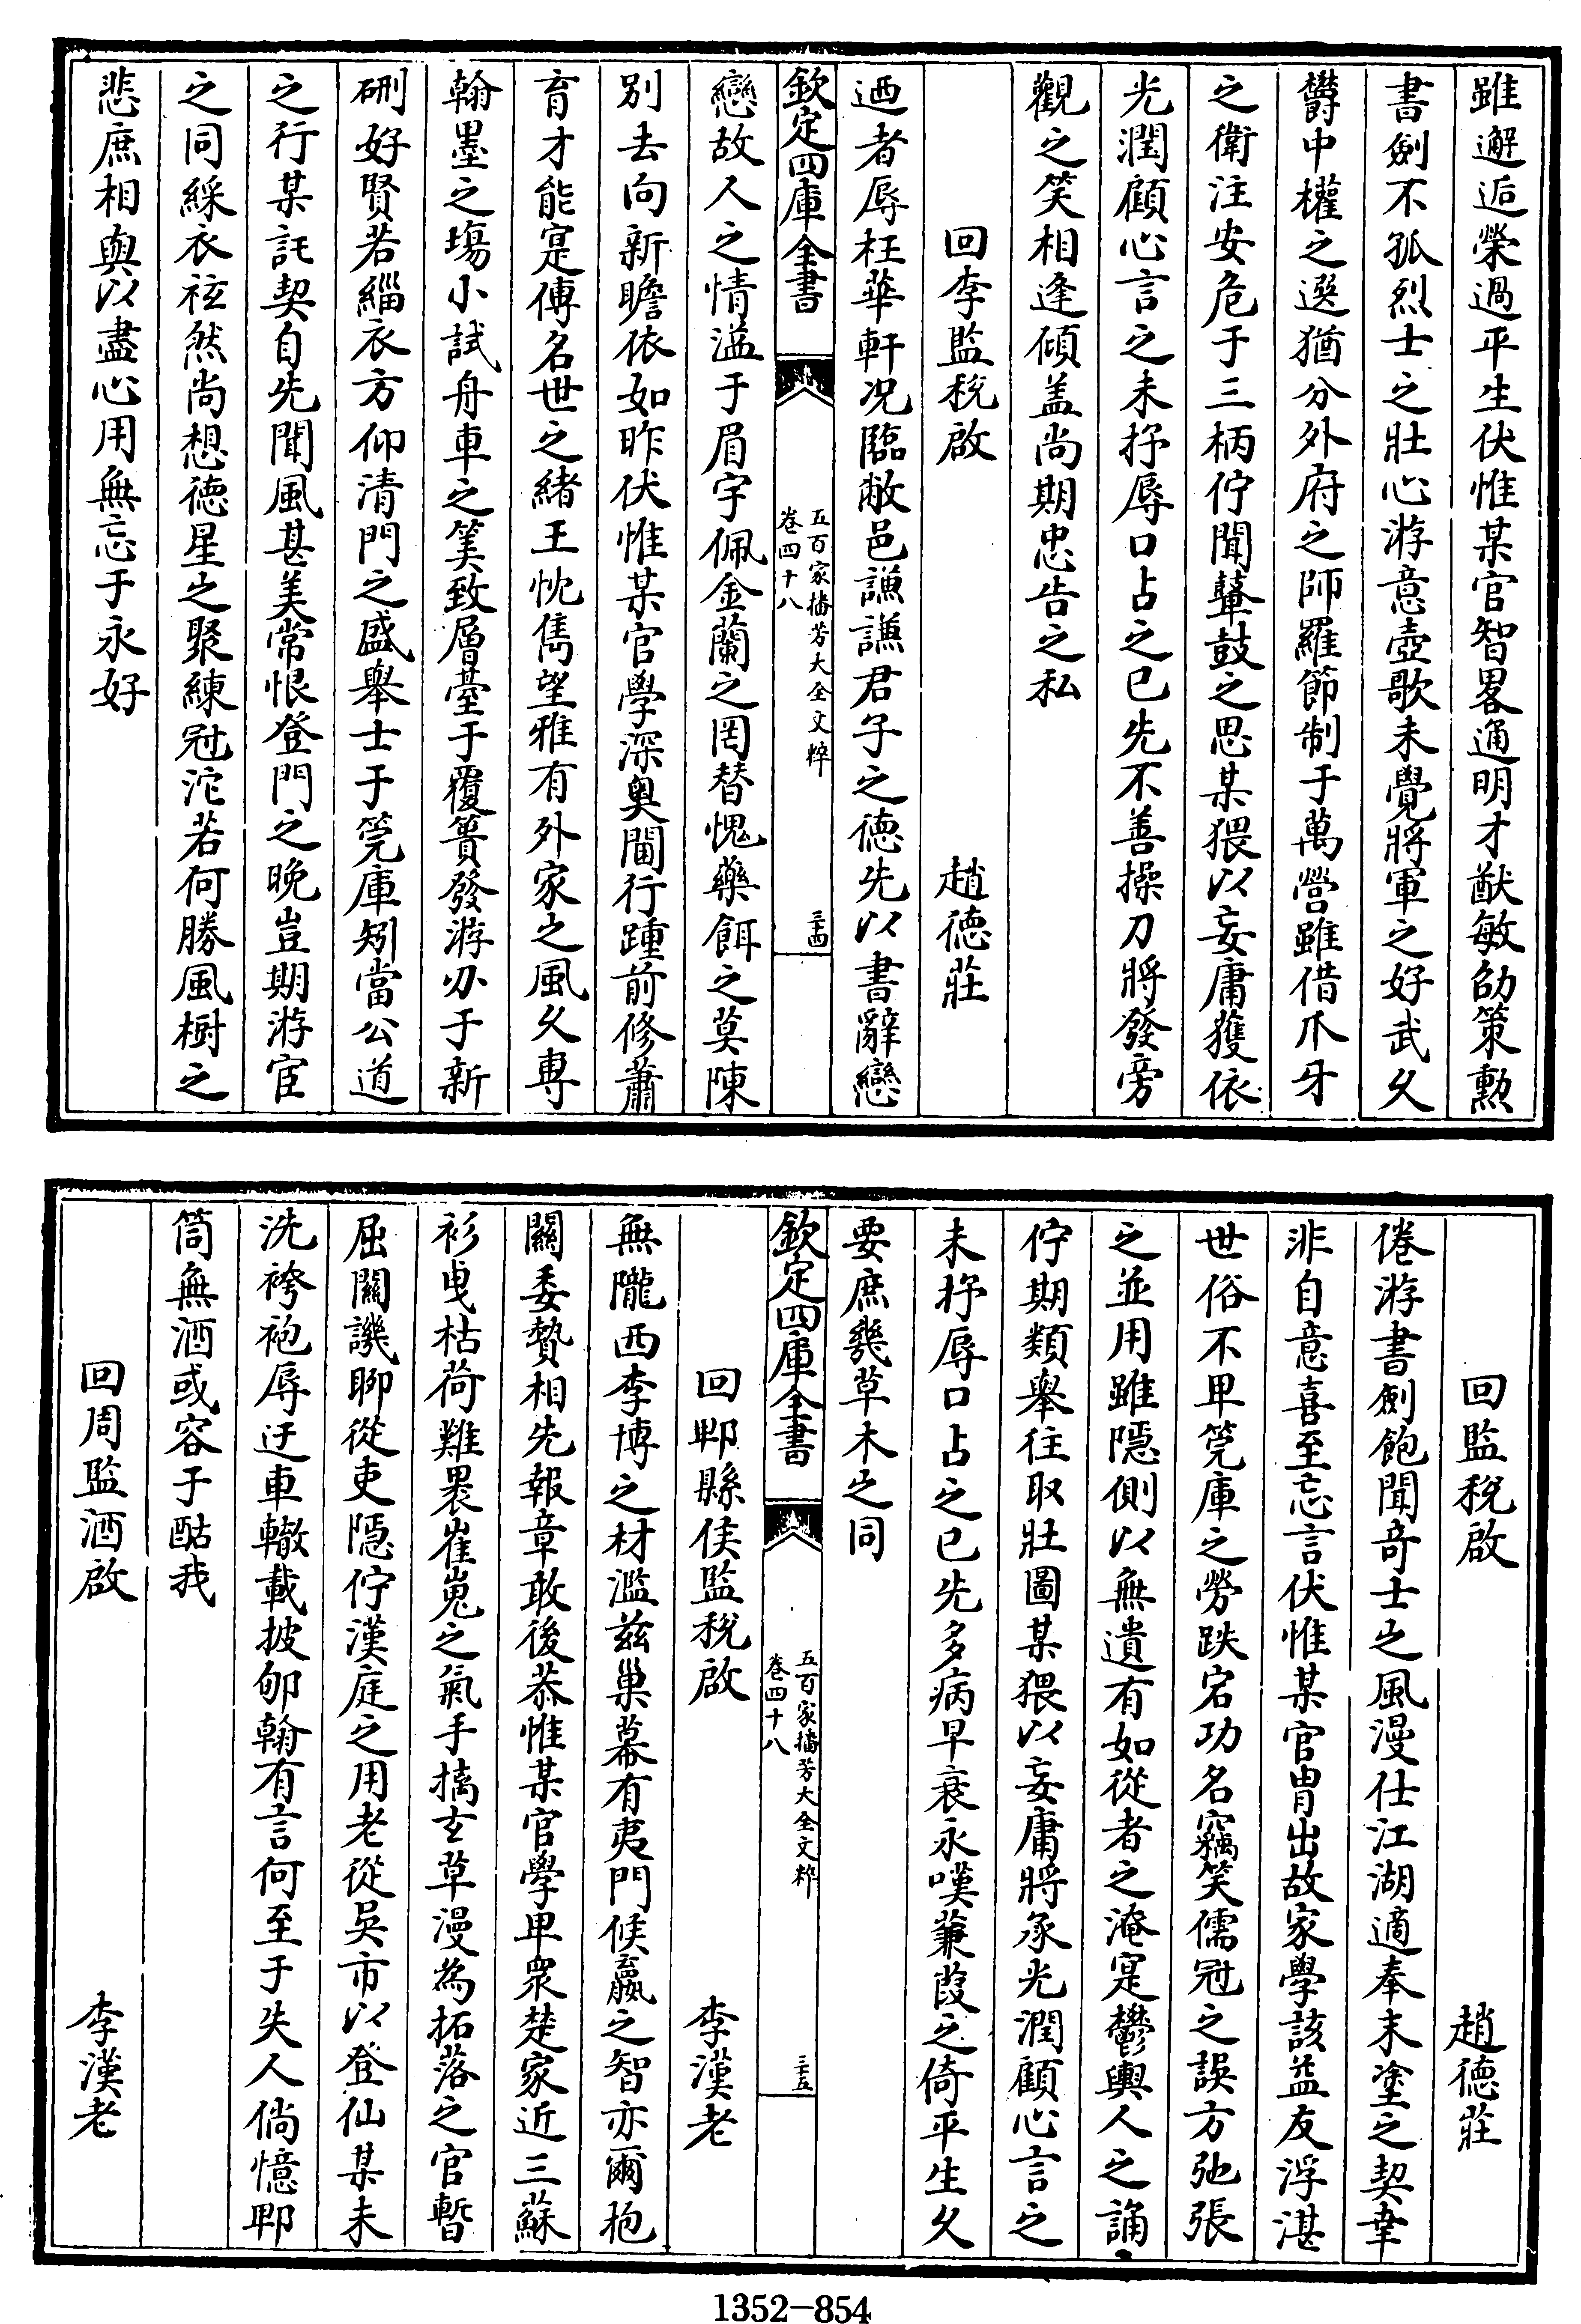 雖邂逅榮過平生伏惟某官智畧通明才猷敏劭策勲
書劍不孤烈士之壯心游意壺歌未覺將軍之好武久
欝中權之選猶分外府之師羅節制于萬營雖借爪牙
之衛注安危于三柄佇聞鼙鼓之思某猥以妄庸獲依
光潤顧心言之未抒辱口占之已先不善操刀將發旁
觀之笑相逢傾盖尚期忠告之私
回李監稅啟　趙德莊
迺者辱枉華軒况臨敝邑謙謙君子之德先以書辭戀
欽定四庫全書　五百家播芳大全文粹　卷四十八　三十四
戀故人之情溢于眉宇佩金蘭之罔替愧藥餌之莫陳
别去向新瞻依如昨伏惟某官學深奥閫行踵前修蕭
育才能寔傅名世之緒王忱雋望雅有外家之風久專
翰墨之場小試舟車之筭致層臺于覆簣發游刃于新
硎好賢若緇衣方仰清門之盛舉士于筦庫矧當公道
之行某託契自先聞風甚美常恨登門之晚豈期游宦
之同綵衣袨然尚想德星之聚練冠沱若何勝風樹之
悲庶相與以盡心用無忘于永好
回監稅啟　趙德莊
倦游書劍飽聞奇士之風漫仕江湖適奉末塗之契幸
非自意喜至忘言伏惟某官胄出故家學該益友浮湛
世俗不卑筦庫之勞跌宕功名竊笑儒冠之誤方弛張
之並用雖隱側以無遺有如從者之淹寔鬱輿人之誦
佇期類舉往取壯圖某猥以妄庸將承光潤顧心言之
未抒辱口占之已先多病早衰永嘆蒹葭之倚平生久
要庶幾草木之同
欽定四庫全書　五百家播芳大全文粹　卷四十八　三十五
回郫縣侯監稅啟　李漢老
無隴西李博之材濫兹巢幕有夷門候嬴之智亦爾抱
關委贄相先報章敢後恭惟某官學卑衆楚家近三蘇
衫曵枯荷難褁崔嵬之氣手摛玄草漫為拓落之官暫
屈關譏聊從吏隱佇漢庭之用老從吳市以登仙某未
洗袴袍辱迂車轍載披郇翰有言何至于失人倘憶郫
筒無酒或容于酤我
回周監酒啟　李漢老
1352-854